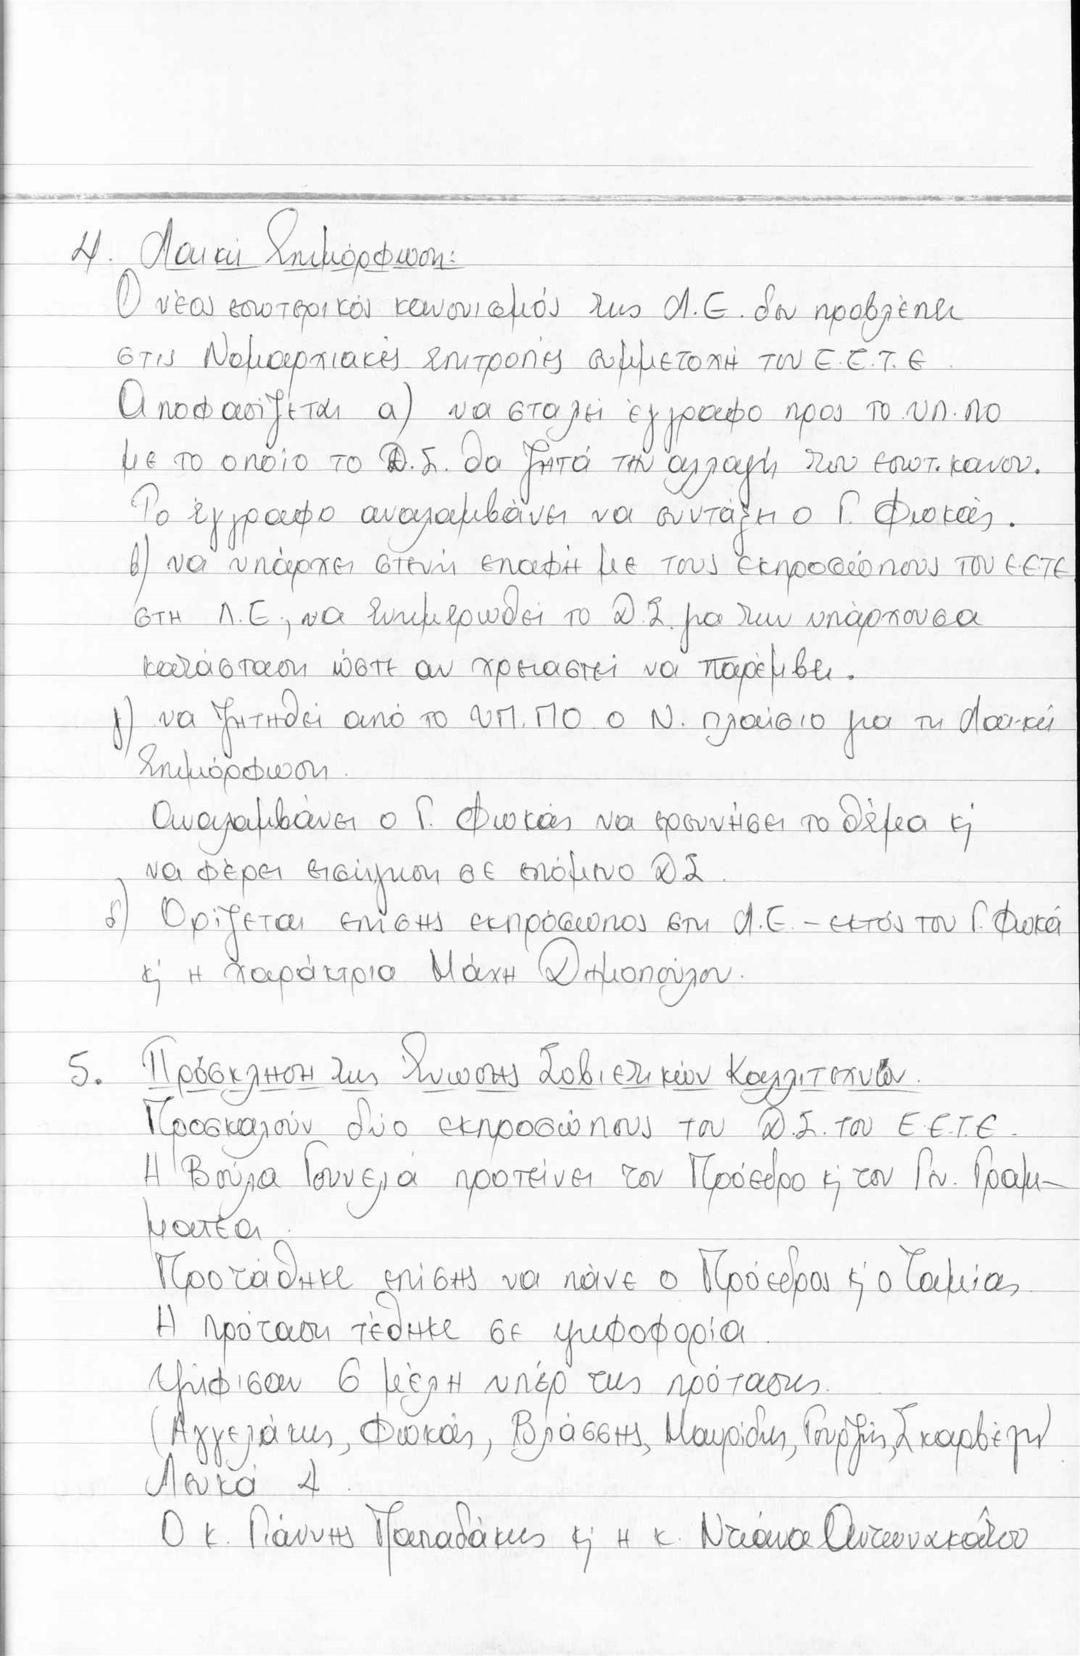 4. Λαϊκή Επιμόρφωση:
Ο νέος εσωτερικός κανονισμός της Λ.Ε. δεν προβλέπει
στις Νομαρχιακές Επιτροπές συμμετοχή του Ε.Ε.Τ.Ε.
Αποφασίζεται α) να σταλεί έγγραφο προς το ΥΠ.ΠΟ
με το οποίο το Δ.Σ. θα ζητά την αλλαγή του εσωτ. κανον.
Το έγγραφο αναλαμβάνει να συντάξη ο Γ. Φωκάς.
β) να υπάρχει στενή επαφή με τους εκπροσώπους του ΕΕΤΕ
στη Λ.Ε., να ενημερωθεί το Δ.Σ. για την υπάρχουσα
κατάσταση ώστε αν χρειαστεί να παρέμβει.
γ) να ζητηθεί από το ΥΠ.ΠΟ ο Ν. πλαίσιο για τη Λαϊκή
Επιμόρφωση.
Αναλαμβάνει ο Γ. Φωκάς να ερευνήσει το θέμα κ'
να φέρει εισήγηση σε επόμενο Δ.Σ.
δ) Ορίζεται επίσης εκπρόσωπος στη Λ.Ε. - εκτός του Γ. Φωκά
κ' η χαράκτρια Μάχη Δημοπούλου.
5. Πρόσκληση της Ένωσης Σοβιετικών Καλλιτεχνών.
Προσκαλούν δύο εκπροσώπους του Δ.Σ. του Ε.Ε.Τ.Ε.
Η Βούλα Γουνελά προτείνει τον Πρόεδρο κ' τον Γεν. Γραμ-
ματέα.
Προτάθηκε επίσης να πάνε ο Πρόεδρος κ' ο Ταμίας
Η πρόταση τέθηκε σε ψηφοφορία.
Ψήφισαν 6 μέλη υπέρ της πρότασης.
(Αγγελάκης, Φωκάς, Βλάσσης, Μαυρίδης, Γουρζής, Σκαρβέλη)
Λευκά 4
Ο κ. Γιάννης Παπαδάκης κ' η κ. Ντιάνα Αντωνακάτου